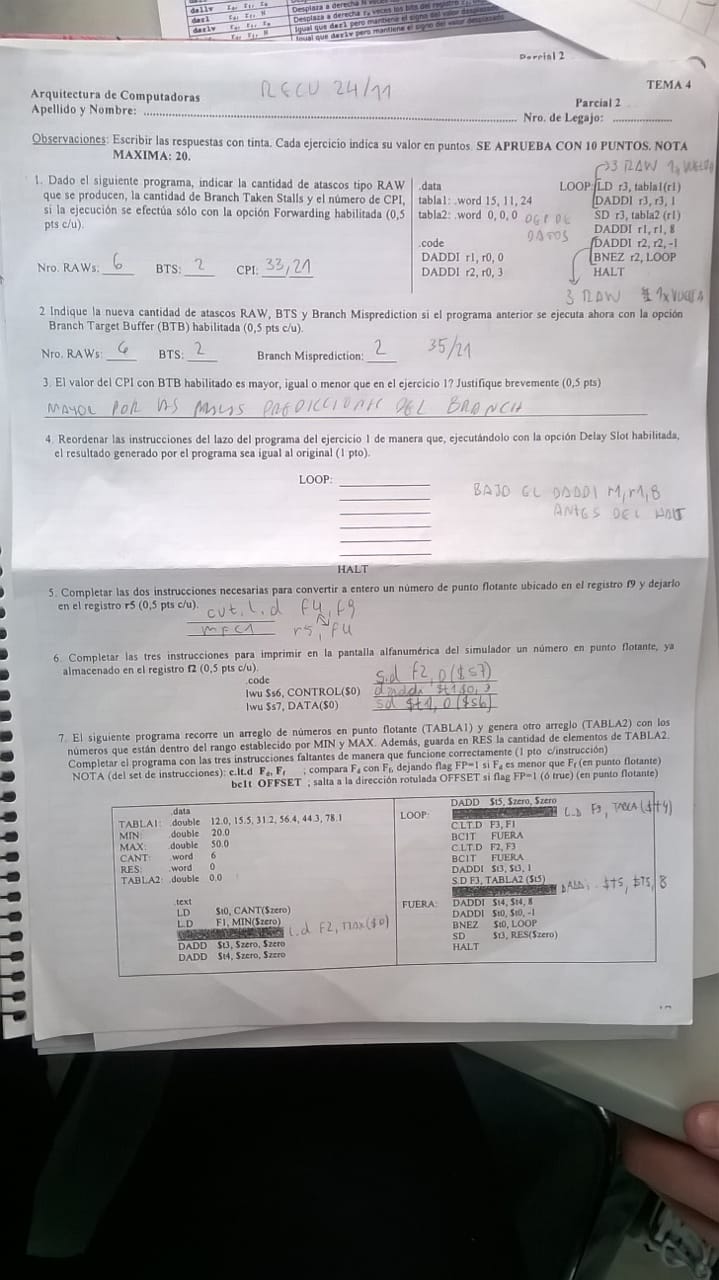 dallv
dsrl
dsrlv
Desplaza a derecha
Igual que dsrl pero mantiene el signo del valor desplazado
Igual que dsrlv pero mantiene el signo del valor
Parcial 2
RECU 24/11
TEMA 4
Arquitectura de Computadoras
Parcial 2
Apellido y Nombre:
Nro. de Legajo:
Observaciones: Escribir las respuestas con tinta. Cada ejercicio indica su valor en puntos. SE APRUEBA CON 10 PUNTOS. NOTA
MAXIMA: 20.
1. Dado el siguiente programa, indicar la cantidad de atascos tipo RAW
que se producen, la cantidad de Branch Taken Stalls y el número de CPI,
si la ejecución se efectúa sólo con la opción Forwarding habilitada (0,5
pts c/u).
Nro. RAWs: 6 BTS: 2 CPI: 33/21
.data
tabla1: .word 15, 11, 24
tabla2: .word 0, 0, 0
DATOS
.code
DADDI r1, r0, 0
DADDI r2, r0, 3
3 RAW 1x VUELTA
LOOP: LD r3, tabla1(r1)
DADDI r3, r3, 1
SD r3, tabla2 (r1)
DADDI r1, r1, 8
DADDI r2, r2, -1
BNEZ r2, LOOP
HALT
3 RAW 1x VUELTA
2 Indique la nueva cantidad de atascos RAW, BTS y Branch Misprediction si el programa anterior se ejecuta ahora con la opción
Branch Target Buffer (BTB) habilitada (0,5 pts c/u).
Nro. RAWs: 6 BTS: 2 Branch Misprediction: 2 35/21
3. El valor del CPI con BTB habilitado es mayor, igual o menor que en el ejercicio 1? Justifique brevemente (0,5 pts)
MAYOR POR LAS MALAS PREDICCIONES DEL BRANCH
4. Reordenar las instrucciones del lazo del programa del ejercicio 1 de manera que, ejecutándolo con la opción Delay Slot habilitada,
el resultado generado por el programa sea igual al original (1 pto).
LOOP:
BAJO EL DADDI r1,r1,8
ANTES DEL HALT
HALT
5. Completar las dos instrucciones necesarias para convertir a entero un número de punto flotante ubicado en el registro f9 y dejarlo
en el registro r5 (0,5 pts c/u).
cvt.l.d f4,f9
mfc1 r5, f4
6. Completar las tres instrucciones para imprimir en la pantalla alfanumérica del simulador un número en punto flotante, ya
almacenado en el registro f2 (0,5 pts c/u).
.code
lwu $s6, CONTROL($0)
lwu $s7, DATA($0)
s.d f2, 0($s7)
daddi $t1,$0, 3
sd $t1, 0($s6)
7. El siguiente programa recorre un arreglo de números en punto flotante (TABLA1) y genera otro arreglo (TABLA2) con los
números que están dentro del rango establecido por MIN y MAX. Además, guarda en RES la cantidad de elementos de TABLA2.
Completar el programa con las tres instrucciones faltantes de manera que funcione correctamente (1 pto c/instrucción)
NOTA (del set de instrucciones): c.lt.d Fd, Ff ; compara Fd con Ff, dejando flag FP=1 si Fd es menor que Ff (en punto flotante)
bc1t OFFSET ; salta a la dirección rotulada OFFSET si flag FP=1 (ó true) (en punto flotante)
.data
TABLA1: .double 12.0, 15.5, 31.2, 56.4, 44.3, 78.1
MIN: .double 20.0
MAX: .double 50.0
CANT: .word 6
RES: .word 0
TABLA2: .double 0.0
.text
LD $t0, CANT($zero)
L.D F1, MIN($zero)
L.d F2, MAX($0)
DADD $t3, $zero, $zero
DADD $t4, $zero, $zero
DADD $t5, $zero, $zero
LOOP: L.D F3, TABLA($t4)
C.LT.D F3, F1
BC1T FUERA
C.LT.D F2, F3
BC1T FUERA
DADDI $t3, $t3, 1
S.D F3, TABLA2 ($t5)
DADDi $t5, $t5, 8
FUERA: DADDI $t4, $t4, 8
DADDI $t0, $t0, -1
BNEZ $t0, LOOP
SD $t3, RES($zero)
HALT